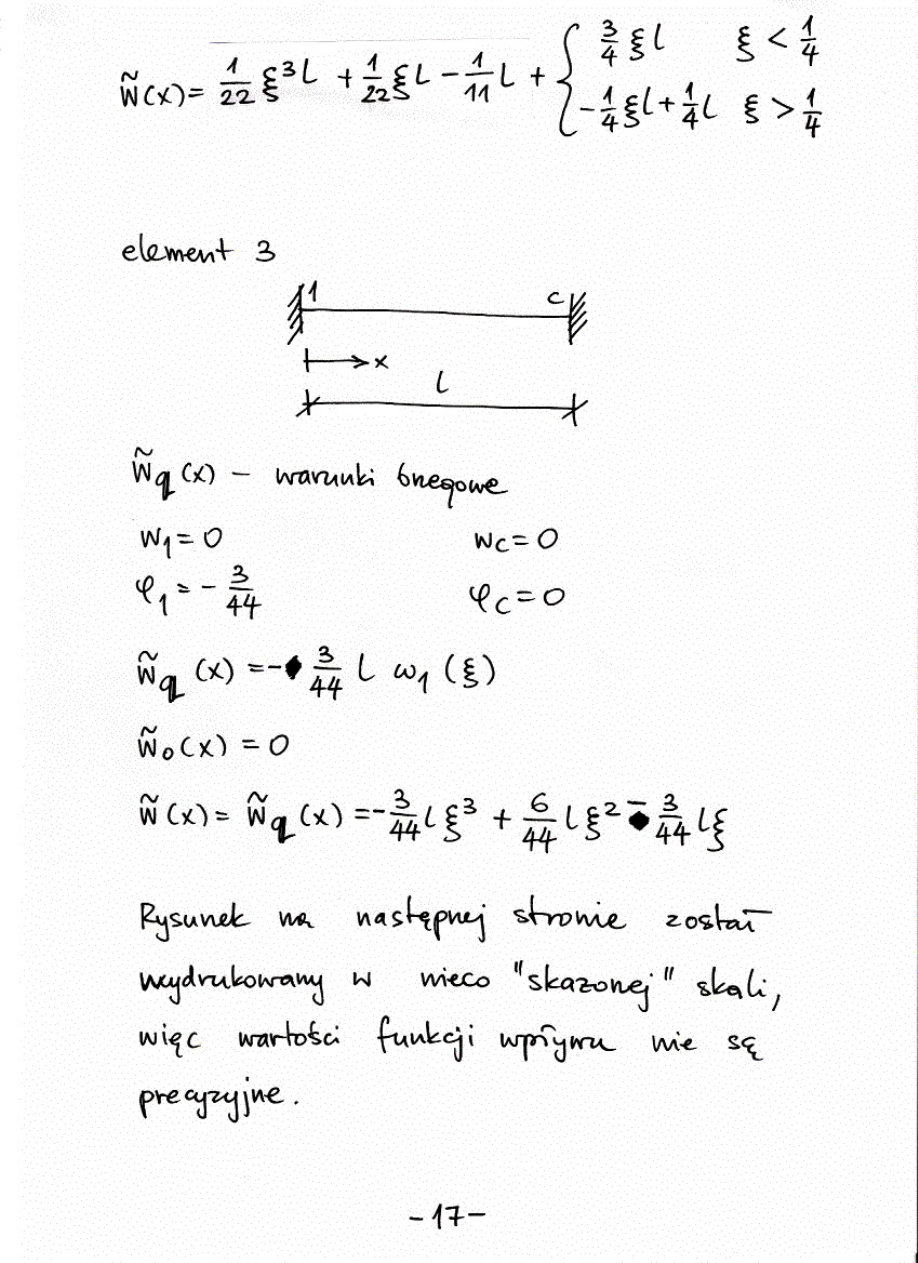 w̃(x)= 1/22 ξ³l + 1/22 ξl − 1/11 l + { 3/4 ξl ξ < 1/4
−1/4 ξl + 1/4 l ξ > 1/4
element 3
1 c
x
l
w̃q(x) – warunki brzegowe
w₁=0 wc=0
φ₁=− 3/44 φc=0
w̃q(x) =− 3/44 l ω₁(ξ)
w̃₀(x) = 0
w̃(x)= w̃q(x) =− 3/44 lξ³ + 6/44 lξ² − 3/44 lξ
Rysunek na następnej stronie został
wydrukowany w nieco "skażonej" skali,
więc wartości funkcji wpływu nie są
precyzyjne.
-17-